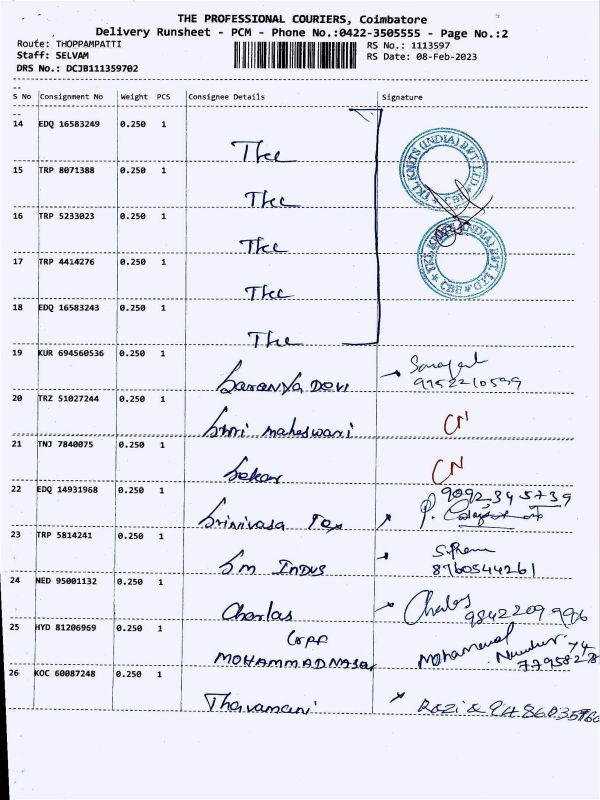 THE PROFESSIONAL COURIERS, Coimbatore
Delivery Runsheet - PCM - Phone No.:0422-3505555 - Page No.:2
Route: THOPPAMPATTI RS No.: 1113597
Staff: SELVAM RS Date: 08-Feb-2023
DRS No.: DCJB111359702
S No Consignment No Weight PCS Consignee Details Signature
14 EDQ 16583249 0.250 1
TKL KNITS (INDIA) PVT. LTD. CBE
15 TRP 8071388 0.250 1
16 TRP 5233023 0.250 1
TKL KNITS (INDIA) PVT. LTD. CBE
17 TRP 4414276 0.250 1
18 EDQ 16583243 0.250 1
19 KUR 694560536 0.250 1
Saranya Devi
20 TRZ 51027244 0.250 1
Shri maheswari CN
21 TNJ 7840075 0.250 1
Sekar CN
22 EDQ 14931968 0.250 1
9092345739
Srinivasa Tex P.
23 TRP 5814241 0.250 1
Sm INDUS 8760544261
24 NED 95001132 0.250 1
Charlas Charles 9842209996
25 HYD 81206969 0.250 1
MOHAMMADNASAR Mohammed
26 KOC 60087248 0.250 1
Thavamani